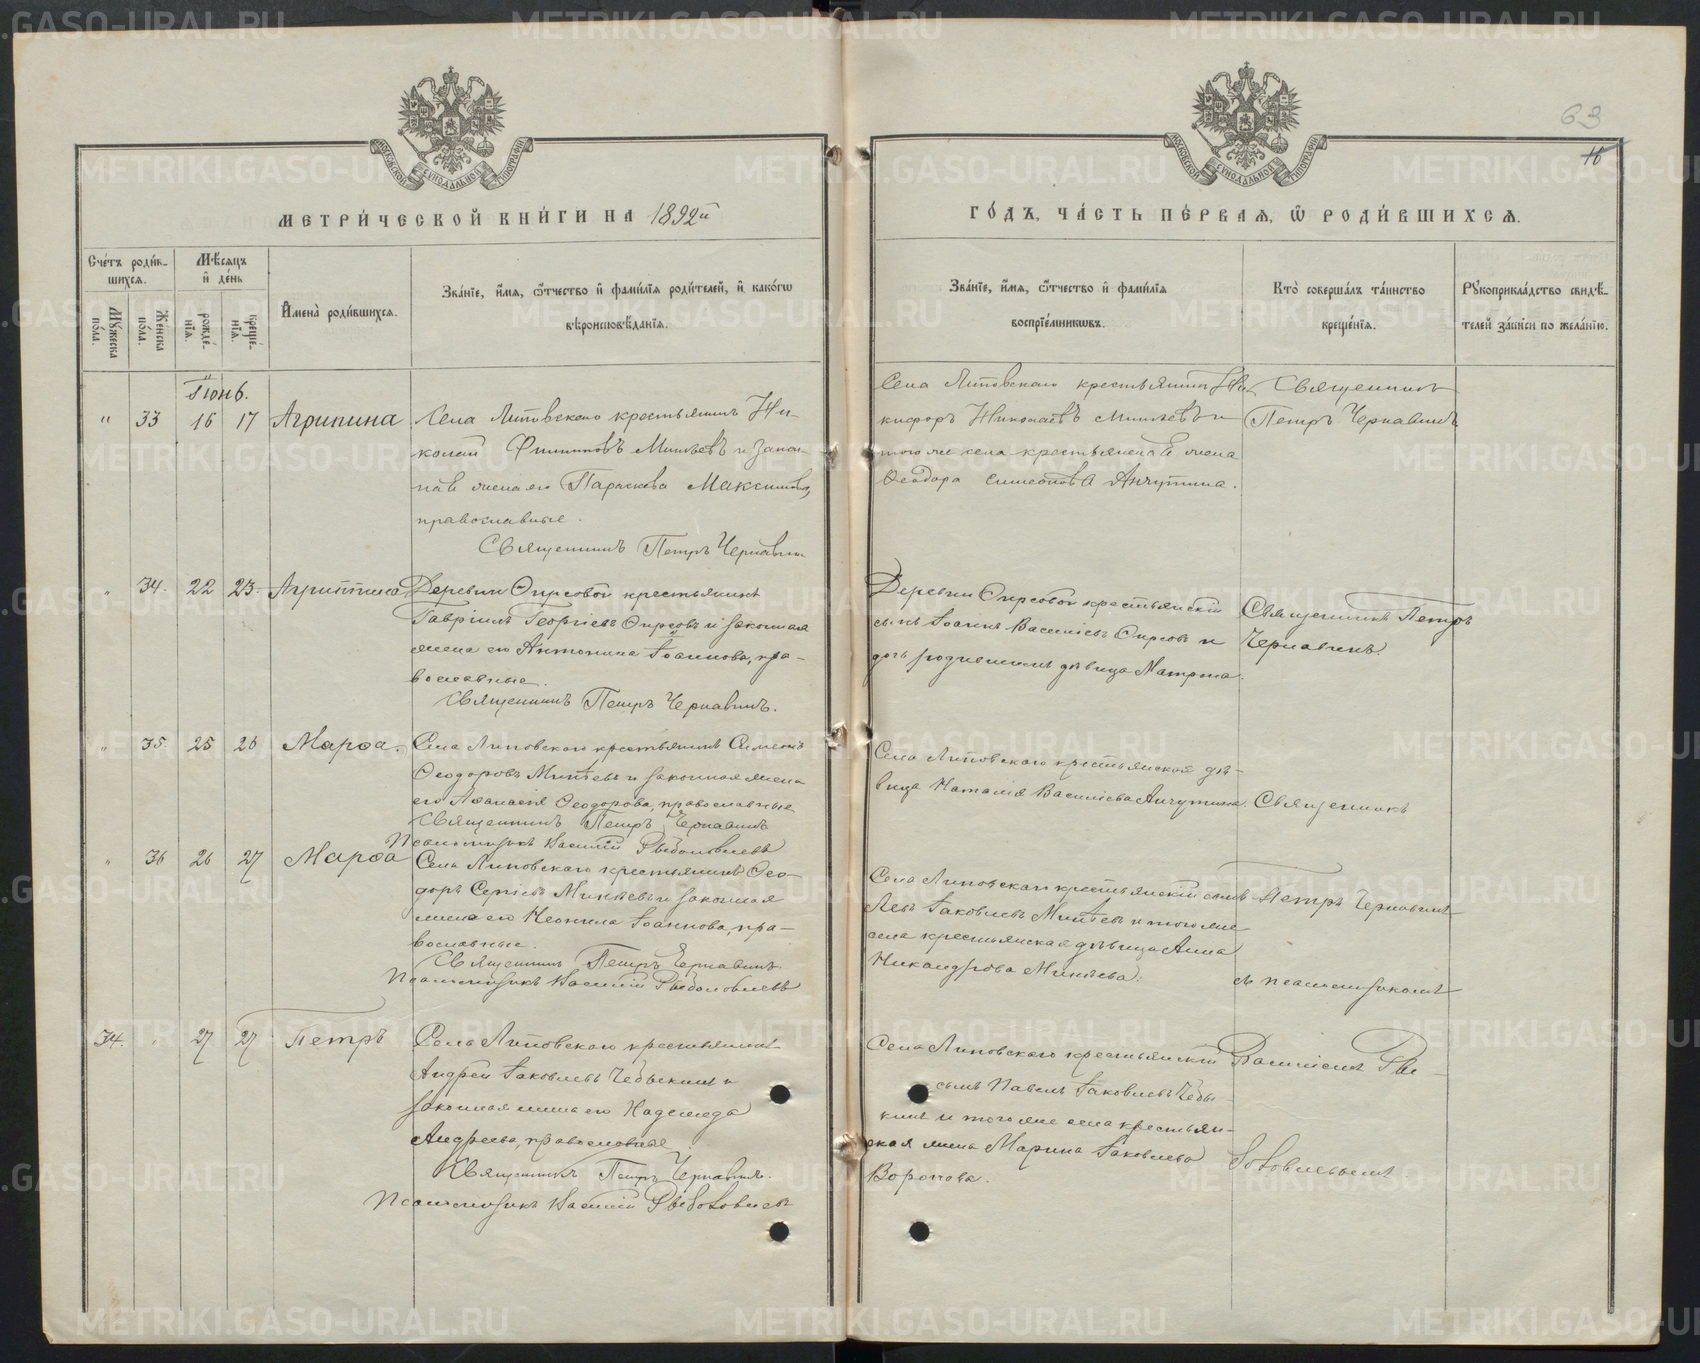 63
16
МЕТРИ́ЧЕСКОЙ КНИ́ГИ НА 1892й
ГО́ДЪ, ЧА́СТЬ ПЕ́РВАЯ, Ѿ РОДИ́ВШИХСЯ.
Сче́тъ роди́в-
шихся.
Мѣсяцъ
и҆ де́нь
Мꙋжеска по́ла.
Же́нска по́ла.
рожде́-
нїя.
креще́-
нїя.
И҆мена̀ роди́вшихся.
Зва́нїе, и҆́мя, ѻ҆́тчество и҆ фами́лїя роди́телей, и҆ како́гѡ
вѣроисповѣ́данїя.
Зва́нїе, и҆́мя, ѻ҆́тчество и҆ фами́лїя
воспрїе́мникѡвъ.
Кто̀ соверша́лъ та́инство
креще́нїя.
Рꙋкоприкла́дство свидѣ́-
телей за́писи по жела́нїю.
Іюнь.
" 33 16 17 Агрипина
Села Липовскаго крестьянинъ Ни-
колай Филиповъ Минѣевъ и закон-
ная жена его Параскева Максимова,
православные.
Священникъ Петръ Чернавинъ
Села Липовскаго крестьянинъ Ни-
кифоръ Николаевъ Минѣевъ и
того же села крестьянина жена
Ѳеодора Симеонова Анчутина.
Священникъ
Петръ Чернавинъ
" 34. 22 23. Агриппина
Деревни Фирсовой крестьянинъ
Гавріилъ Георгіевъ Фирсовъ и законная
жена его Антонина Іоаннова, пра-
вославные.
Священникъ Петръ Чернавинъ.
Деревни Фирсовой крестьянскій
сынъ Іоаннъ Василіевъ Фирсовъ и
дочь родненькая дѣвица Матрона.
Священникъ Петръ
Чернавинъ.
" 35. 25 26 Марѳа.
Села Липовскаго крестьянинъ Симеонъ
Ѳеодоровъ Минѣевъ и законная жена
его Аѳанасія Ѳеодорова, православные
Священникъ Петръ Чернавинъ
Псаломщикъ Василій Рыболовлевъ
Села Липовскаго крестьянская дѣ-
вица Наталія Василіева Анчутина.
Священникъ
" 36 26 27 Марѳа
Села Липовскаго крестьянинъ Ѳео-
доръ Сергіевъ Минѣевъ и законная
жена его Неонила Іоаннова, пра-
вославные.
Священникъ Петръ Чернавинъ.
Псаломщикъ Василій Рыболовлевъ
Села Липовскаго крестьянскій сынъ
Левъ Іаковлевъ Минѣевъ и того же
села крестьянская дѣвица Анна
Никандрова Минѣева.
Петръ Чернавинъ
съ псаломщикомъ
34. " 27 27 Петръ
Села Липовскаго крестьянинъ
Андрей Іаковлевъ Чебыкинъ и
законная жена его Надежда
Андреева, православные
Священникъ Петръ Чернавинъ.
Псаломщикъ Василій Рыболовлевъ
Села Липовскаго крестьянскій
сынъ Павелъ Іаковлевъ Чебы-
кинъ и того же села крестьян-
ская жена Марина Іаковлева
Воронова.
Василіемъ Ры-
боловлевымъ